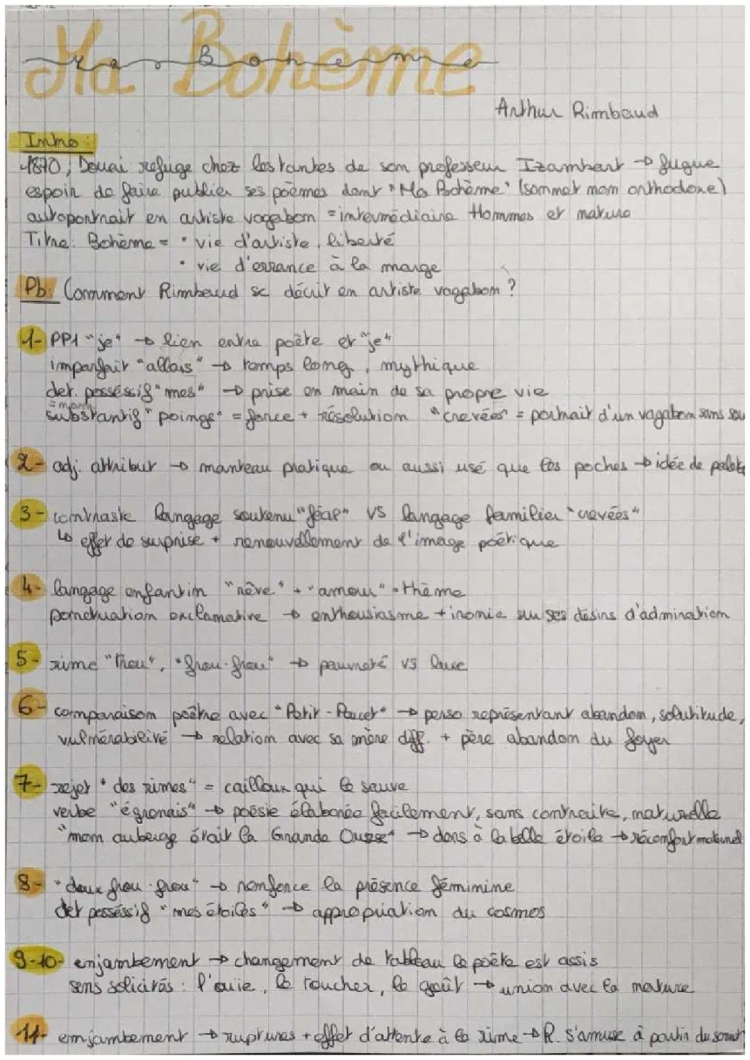 Ma Bohème
Ma Bohème
Arthur Rimbaud
Intro:
1870, Douai refuge chez les tantes de son professeur Izambart → fugue
espoir de faire publier ses poèmes dont "Ma Bohème" (sonnet non orthodoxe)
autoportrait en artiste vagabon = intermédiaire Hommes et nature
Titre: Bohème = • vie d'artiste, liberté
• vie d'errance à la marge
Pb: Comment Rimbaud se décrit en artiste vagabon ?
1- PP1 "je" → lien entre poète et "je"
imparfait "allais" → temps long, mythique
det. posséssif "mes" → prise en main de sa propre vie
substantif "poings" = force + résolution "crevées" = portrait d'un vagabon sans sou
2- adj. attribut → manteau pratique ou aussi usé que les poches → idée de
3- contraste langage soutenu "féap" VS langage familier "crevées"
↳ effet de surprise + renouvellement de l'image poétique
4- langage enfantin "rêve" + "amour" = thème
ponctuation exclamative → enthousiasme + ironie sur ses désirs d'admiration
5- rime "trou", "frou-frou" → pauvreté VS luxe
6- comparaison poètre avec "Petit-Poucet" → perso représentant abandon, solutitude,
vulnérabilité → relation avec sa mère diff. + père abandon du foyer
7- rejet "des rimes" = cailloux qui le sauve
verbe "égronais" → poésie élaborée facilement, sans contrainte, naturelle
"mon auberge était la Grande Ourse" → dors à la belle étoile → réconfort maternel
8- "doux frou-frou" → renforce la présence féminine
det posséssif "mes étoiles" → appropriation du cosmos
9-10- enjambement → changement de tableau le poète est assis
sens solicités : l'ouie, le toucher, le goût → union avec la nature
11- enjambement → ruptures + effet d'attente à la rime → R. s'amuse à partir du sonnet